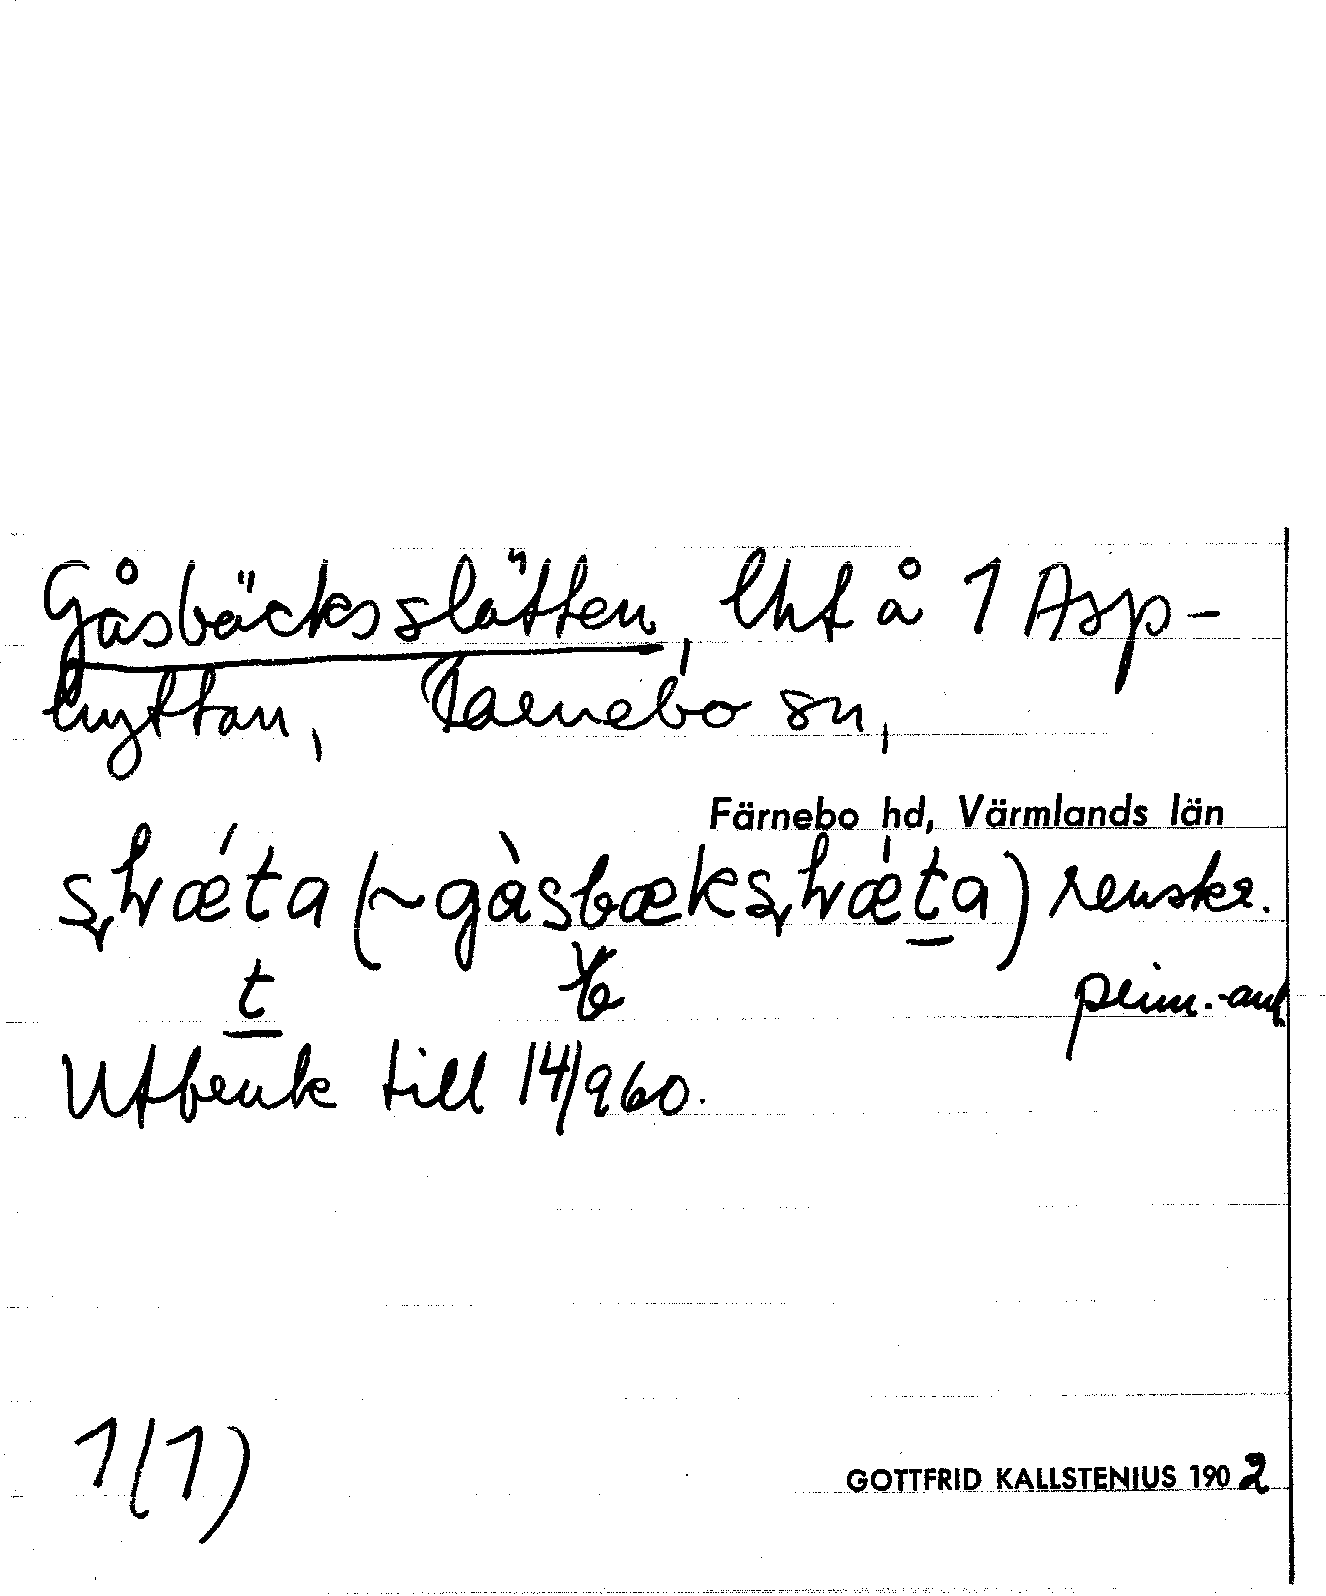 Gåsbäcksslätten, lht å 1 Asp-
hyttan, Färnebo sn,
Färnebo hd, Värmlands län
(~gàsbæks renskr.
t
prim.-ant
Utbenk till 14/960.
1(1)
GOTTFRID KALLSTENIUS 1902